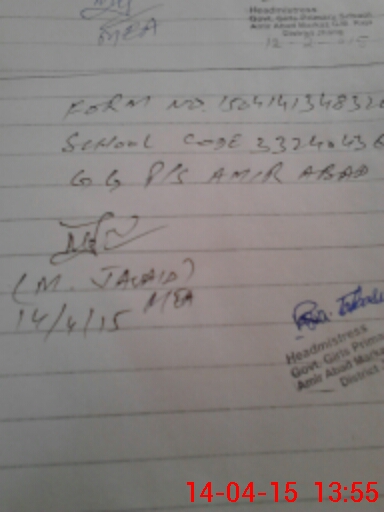 MEA
Headmistress
Govt. Girls Primary School
Amir Abad Market
12-2-015
FORM NO. 1504141348320
SCHOOL CODE 33240436
GG P/S AMIR ABAD
(M. JAVAID)
MEA
14/4/15
Headmistress
Govt. Girls Prima
Amir Abad Marke
District
14-04-15 13:55